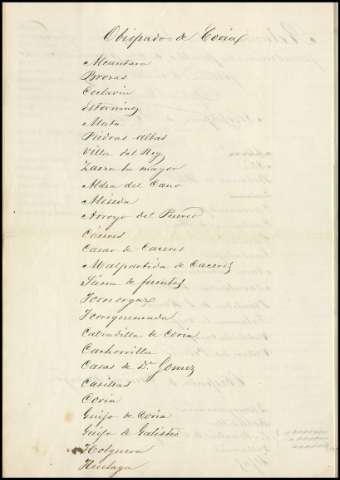 Obispado de Coria
Alcantara
Brozas
Ceclavin
Estorninos
Mata
Piedras albas
Villa del Rey
Zarza la mayor
Aldea del Cano
Aliseda
Arroyo del Puerco
Cáceres
Casar de Caceres
Malpartida de Caceres
Sierra de fuentes
Torreorgaz
Torrequemada
Calzadilla de Coria
Cachorrilla
Casas de Dn Gomez
Casillas
Coria
Guijo de Coria
Guijo de Galisteo
Holguera
Huelaga